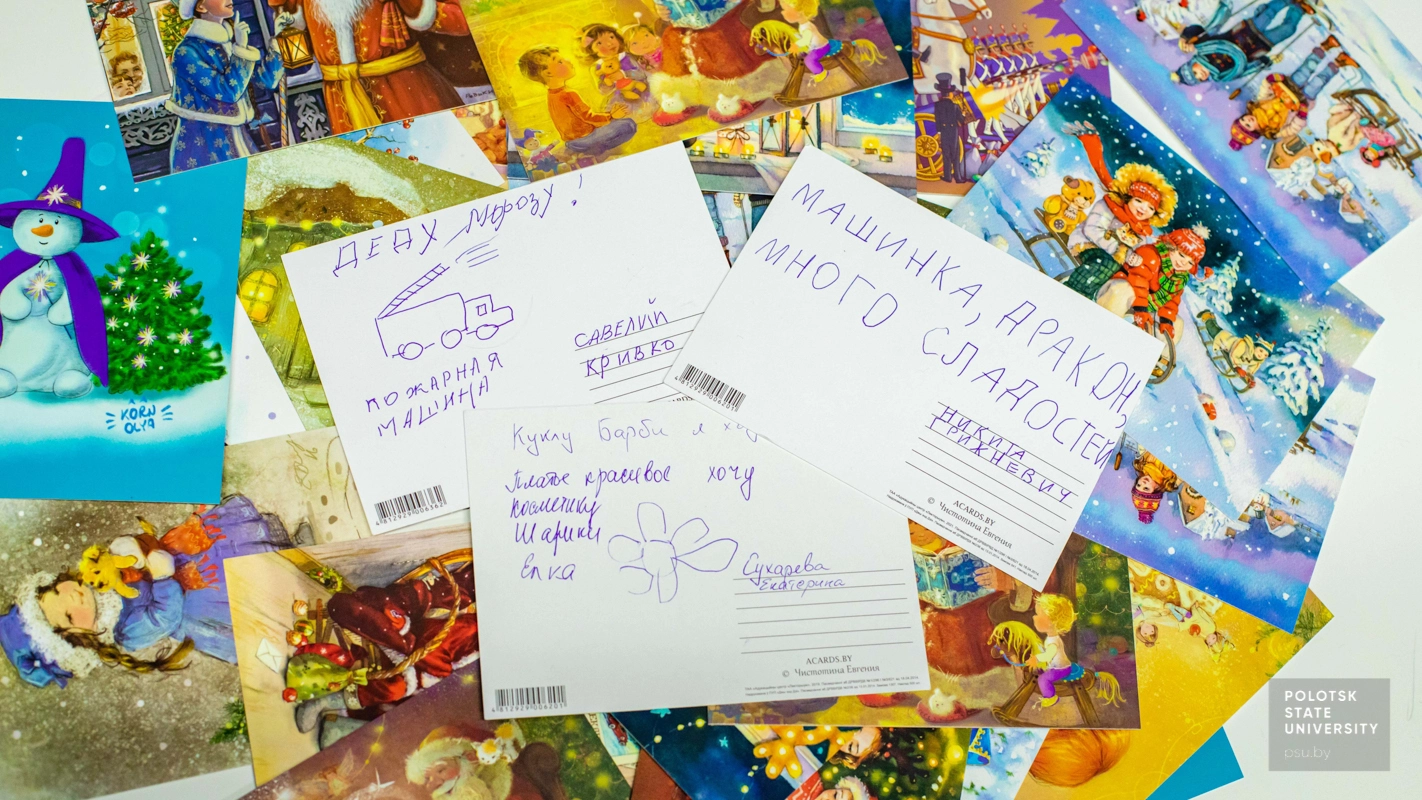 ДЕДУ МОРОЗУ!
ПОЖАРНАЯ
МАШИНА
САВЕЛИЙ
КРИВКО
4812929006362
МАШИНКА, ДРАКОН,
МНОГО СЛАДОСТЕЙ
НИКИТА
ГРИЖНЕВИЧ
ACARDS.BY
© Чистотина Евгения
4812929006201
Куклу Барби я
Платье красивое хочу
косметику
Шарики
Елка
Сухарева
Екатерина
ACARDS.BY
© Чистотина Евгения
4812929006201
KORN
OLYA
POLOTSK
STATE
UNIVERSITY
psu.by